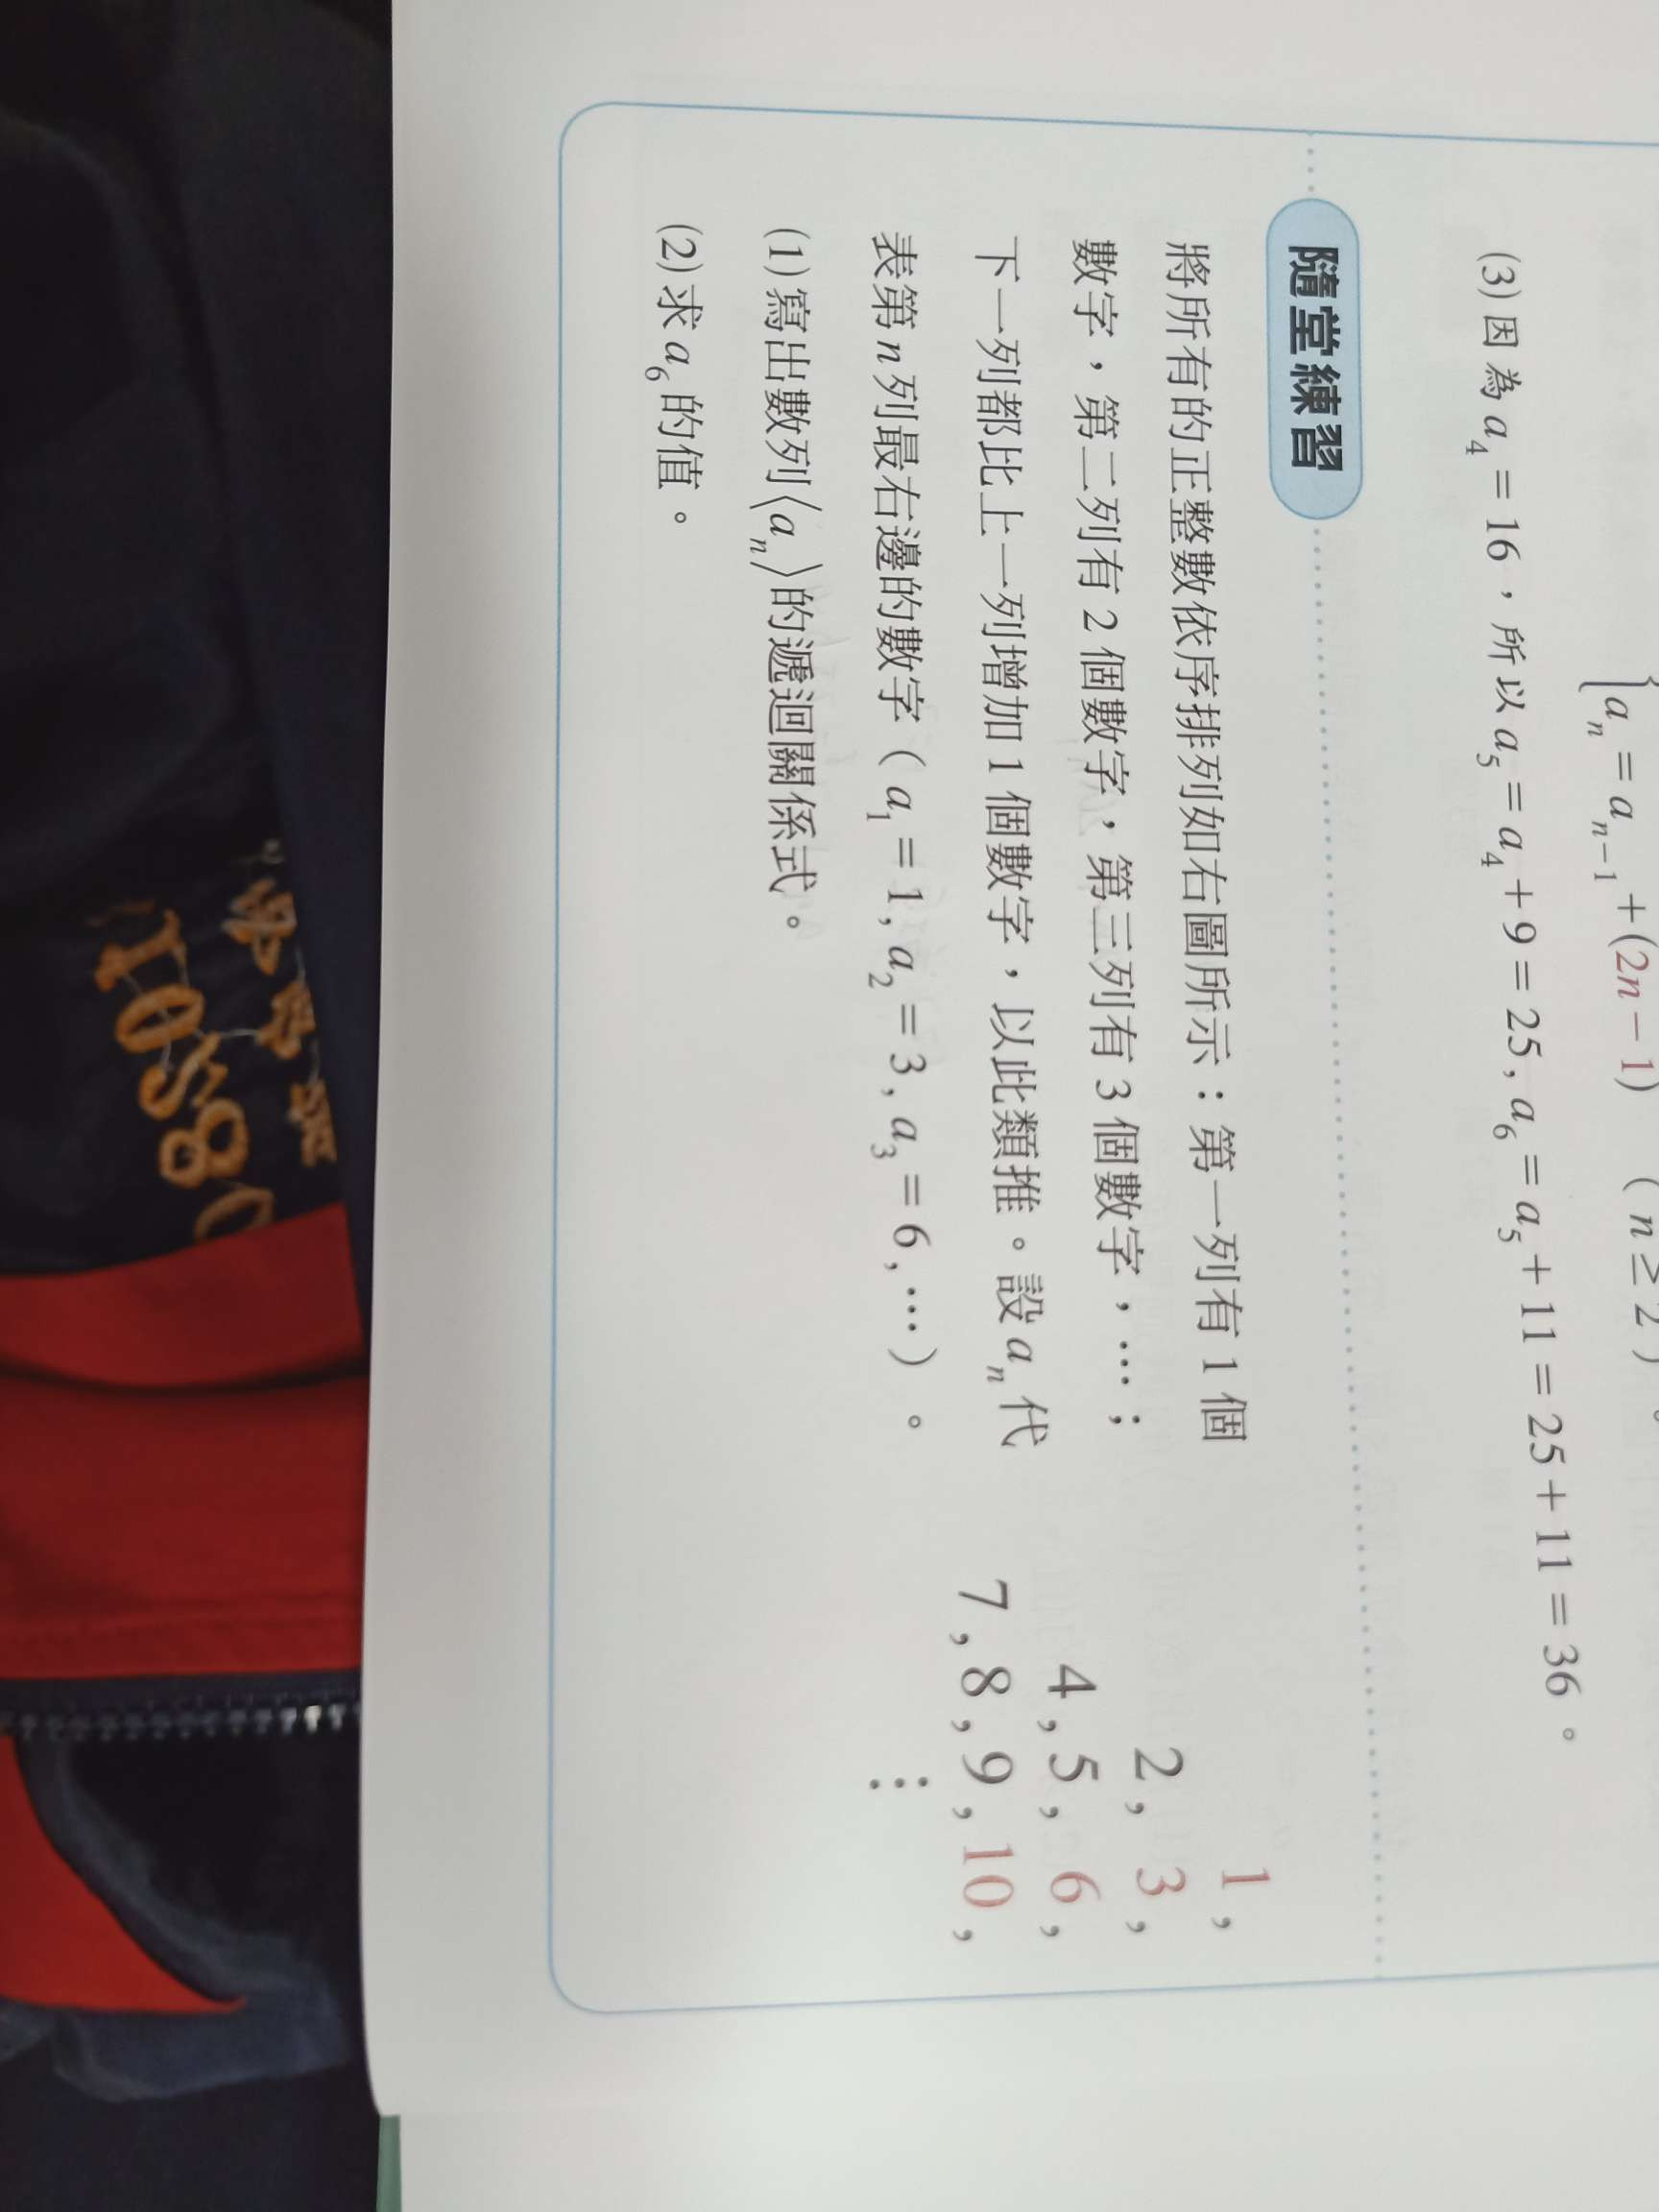 {aₙ = aₙ₋₁ + (2n − 1) ( n ≥ 2 )
(3) 因為 a₄ = 16，所以 a₅ = a₄ + 9 = 25, a₆ = a₅ + 11 = 25 + 11 = 36。
隨堂練習
將所有的正整數依序排列如右圖所示：第一列有 1 個
數字，第二列有 2 個數字，第三列有 3 個數字，…；
下一列都比上一列增加 1 個數字，以此類推。設 aₙ 代
表第 n 列最右邊的數字（a₁ = 1, a₂ = 3, a₃ = 6, …）。
1,
2, 3,
4, 5, 6,
7, 8, 9, 10,
⋮
(1) 寫出數列〈aₙ〉的遞迴關係式。
(2) 求 a₆ 的值。